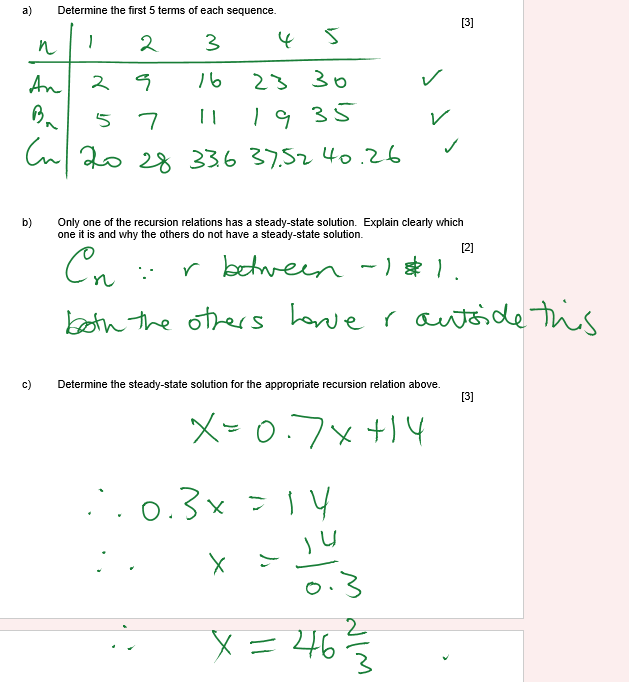 a) Determine the first 5 terms of each sequence.
[3]
n 1 2 3 4 5
An 2 9 16 23 30 ✓
Bn 5 7 11 19 35 ✓
Cn 20 28 33.6 37.52 40.26 ✓
b) Only one of the recursion relations has a steady-state solution. Explain clearly which
one it is and why the others do not have a steady-state solution.
[2]
Cn ∵ r between -1 & 1.
both the others have r outside this
c) Determine the steady-state solution for the appropriate recursion relation above.
[3]
x = 0.7x + 14
∴ 0.3x = 14
∴ x = 14/0.3
∴ x = 46 2/3 ✓